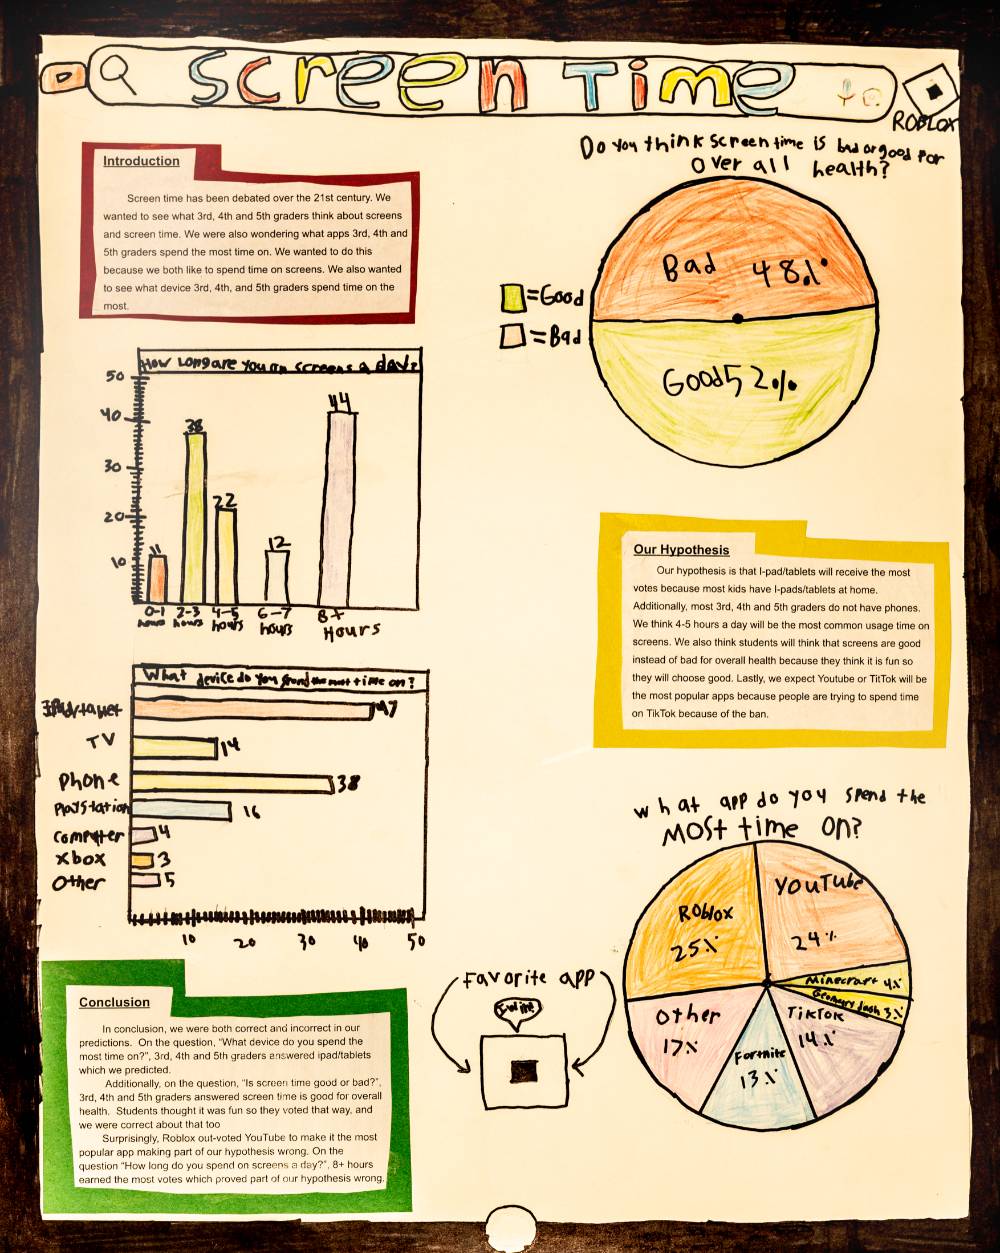 Screen Time
ROBLOX
Introduction
Screen time has been debated over the 21st century. We
wanted to see what 3rd, 4th and 5th graders think about screens
and screen time. We were also wondering what apps 3rd, 4th and
5th graders spend the most time on. We wanted to do this
because we both like to spend time on screens. We also wanted
to see what device 3rd, 4th, and 5th graders spend time on the
most.
Do you think screen time is bad or good for
over all health?
Bad 48%
Good 52%
=Good
=Bad
How long are you on screens a day?
50
40
30
20
10
11
38
22
12
44
0-1 hours
2-3 hours
4-5 hours
6-7 hours
8+ Hours
Our Hypothesis
Our hypothesis is that I-pad/tablets will receive the most
votes because most kids have I-pads/tablets at home.
Additionally, most 3rd, 4th and 5th graders do not have phones.
We think 4-5 hours a day will be the most common usage time on
screens. We also think students will think that screens are good
instead of bad for overall health because they think it is fun so
they will choose good. Lastly, we expect Youtube or TitTok will be
the most popular apps because people are trying to spend time
on TikTok because of the ban.
What device do you spend the most time on?
IPad/tablet 47
TV 14
Phone 38
Playstation 16
Computer 4
xbox 3
Other 5
10 20 30 40 50
What app do you spend the
most time on?
YouTube
24%
Minecraft 4%
Geometry dash 3%
TikTok
14%
Fortnite
13%
Other
17%
Roblox
25%
Favorite app
Conclusion
In conclusion, we were both correct and incorrect in our
predictions. On the question, "What device do you spend the
most time on?", 3rd, 4th and 5th graders answered ipad/tablets
which we predicted.
Additionally, on the question, "Is screen time good or bad?",
3rd, 4th and 5th graders answered screen time is good for overall
health. Students thought it was fun so they voted that way, and
we were correct about that too
Surprisingly, Roblox out-voted YouTube to make it the most
popular app making part of our hypothesis wrong. On the
question "How long do you spend on screens a day?", 8+ hours
earned the most votes which proved part of our hypothesis wrong.